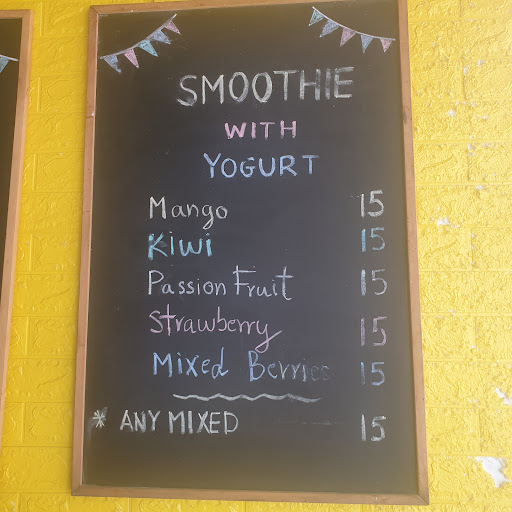 SMOOTHIE
WITH
YOGURT
Mango 15
Kiwi 15
Passion Fruit 15
Strawberry 15
Mixed Berries 15
* ANY MIXED 15